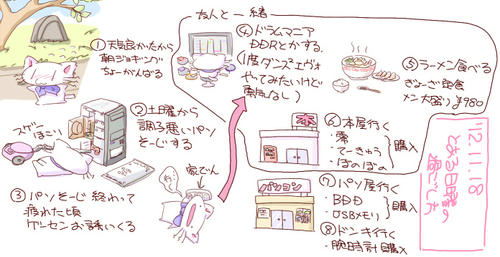 '12.11.18
とある日曜の
過ごし方
① 天気良かったから
朝ジョギング
ちょーがんばる
② 土曜から
調子悪いパソ
そーじする
スゲー
ほこり
③ パソそーじ終わって
疲れた頃
ゲーセンお誘いくる
家でん
友人と一緒
④ ドラムマニア
DDRとかする。
(1度ダンスエヴォ
やってみたいけど
勇気なし)
⑤ ラーメン食べる
ぎょーざ定食
メン大盛り ¥780
本
⑥ 本屋行く
・零
・てーきゅう
・ぼのぼの
購入
パソコン
⑦ パソ屋行く
・BDD
・USBメモリ
購入
⑧ ドンキ行く
・腕時計購入